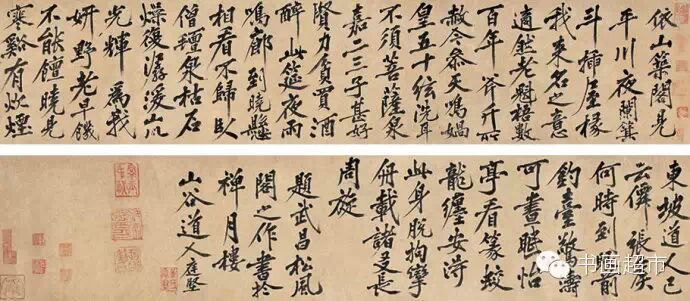 依山築閣見
平川夜闌箕
斗插屋椽
我來名之意
適然老魁梧數
百年斧斤所
赦今參天鳴媧
皇五十弦洗耳
不須菩薩泉
嘉二三子甚好
賢力貧買酒
醉此筵夜雨
鳴廊到曉懸
相看不歸臥
僧氈泉枯石
燥復潺湲山川
光輝為我
妍野老早饑
不能饘曉見
寒谿有炊煙
東坡道人已
云僊張侯
何時到前
釣臺驚濤
可晝眠怡
亭看篆蛟
龍纏安得
此身脫拘攣
舟載諸友長
周旋
題武昌松風
閣之作書於
禪月樓
山谷道人庭堅
书画超市